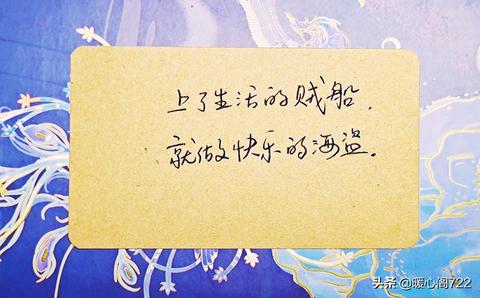 上了生活的贼船，
就做快乐的海盗。
头条 @暖心阁722